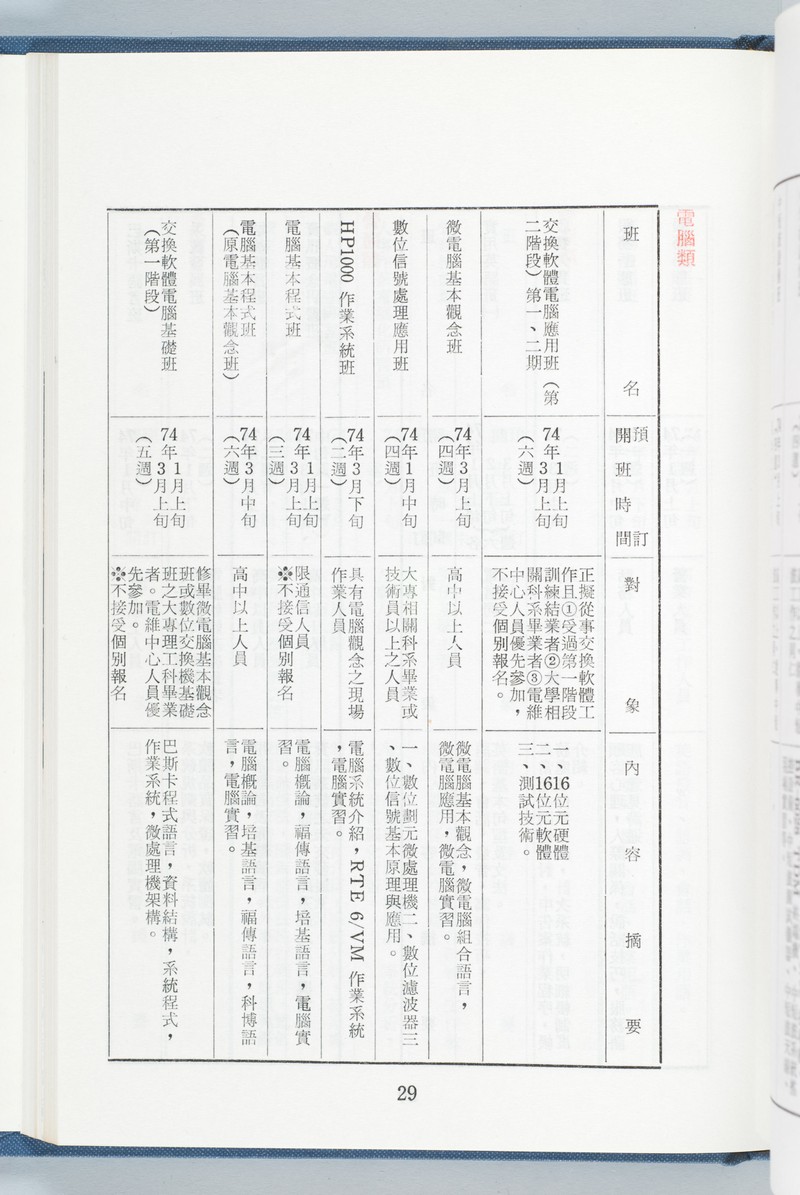 電腦類
班名
預訂
開班時間
對象
內容摘要
交換軟體電腦應用班（第
二階段）第一、二期
74年1月上旬
年3月上旬
（六週）
正擬從事交換軟體工
作且①受過第一階段
訓練結業者②大學相
關科系畢業者③電維
中心人員優先參加，
不接受個別報名。
一、16位元硬體
二、16位元軟體
三、測試技術。
微電腦基本觀念班
74年3月上旬
（四週）
高中以上人員
微電腦基本觀念，微電腦組合語言，
微電腦應用，微電腦實習。
數位信號處理應用班
74年1月中旬
（四週）
大專相關科系畢業或
技術員以上之人員
一、數位劃元微處理機二、數位濾波器三
、數位信號基本原理與應用。
HP1000 作業系統班
74年3月下旬
（二週）
具有電腦觀念之現場
作業人員
電腦系統介紹，RTE 6/VM 作業系統
，電腦實習。
電腦基本程式班
74年1月上旬
年3月上旬
（三週）
限通信人員
※不接受個別報名
電腦概論，福傳語言，培基語言，電腦實
習。
電腦基本程式班
（原電腦基本觀念班）
74年3月中旬
（六週）
高中以上人員
電腦概論，培基語言，福傳語言，科博語
言，電腦實習。
交換軟體電腦基礎班
（第一階段）
74年1月上旬
年3月上旬
（五週）
修畢微電腦基本觀念
班或數位交換機基礎
班之大專理工科畢業
者。電維中心人員優
先參加。
※不接受個別報名
巴斯卡程式語言，資料結構，系統程式，
作業系統，微處理機架構。
29